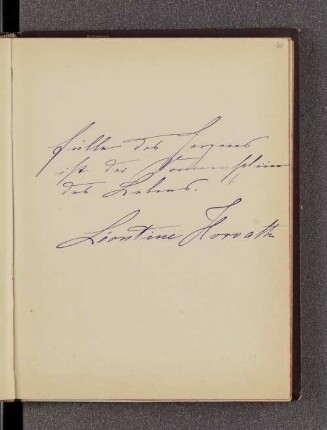 Fülle des Herzens
ist der Sonnenschein
des Lebens.
Léontine Horvath